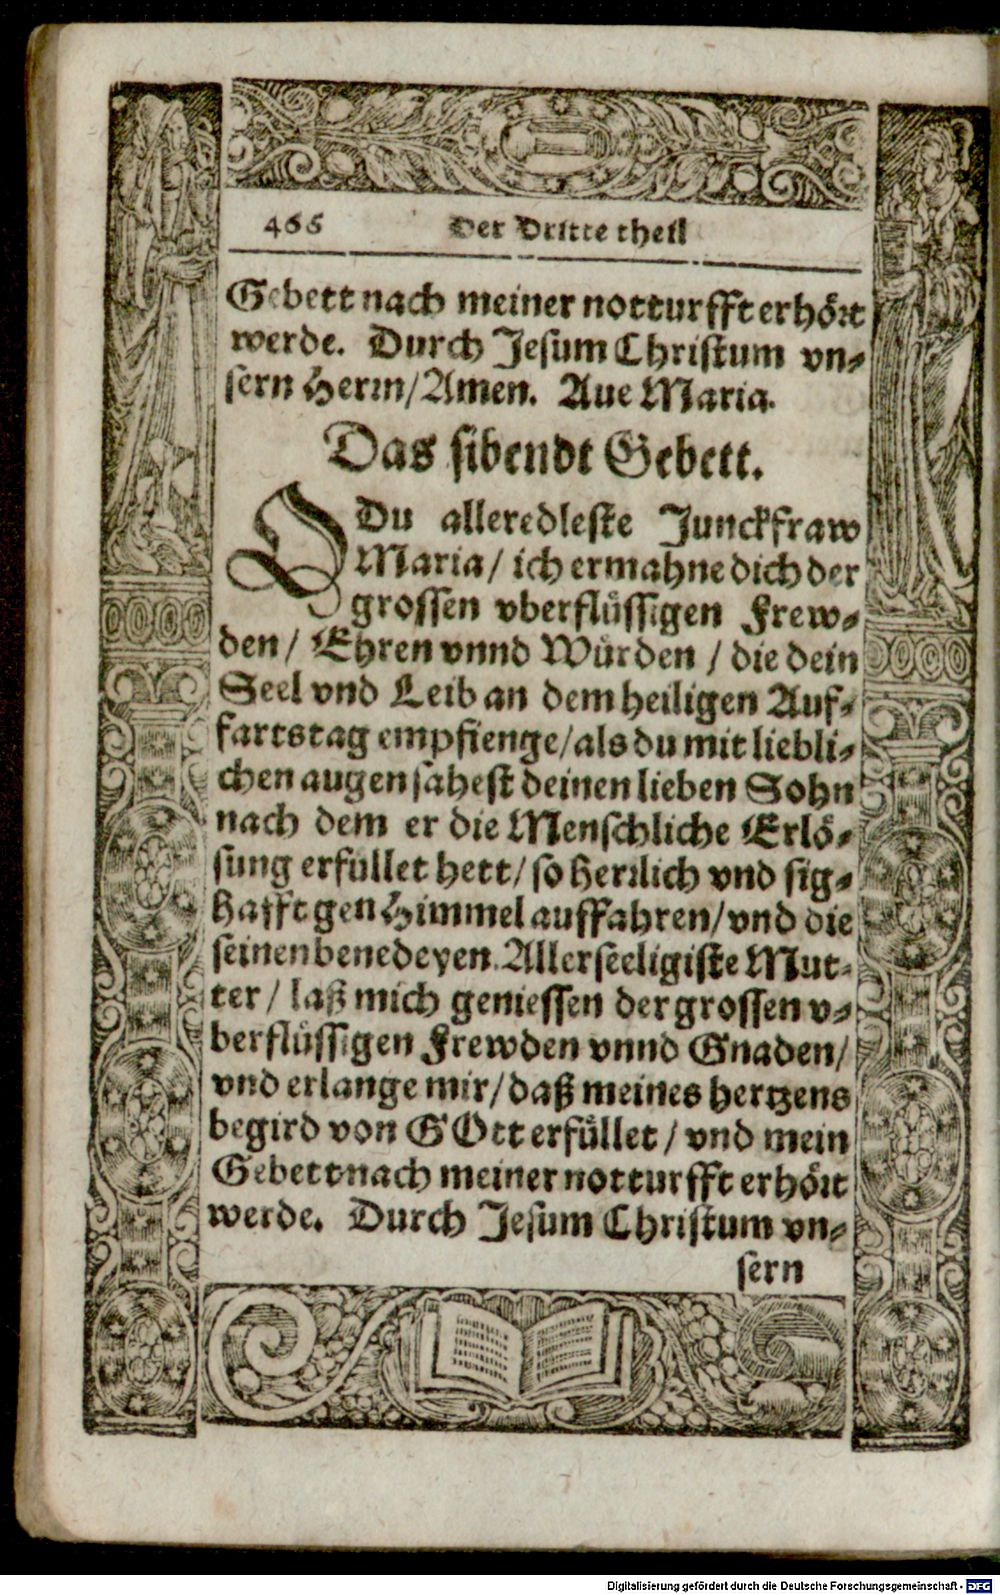 466 Der Dritte theil
Gebett nach meiner notturfft erhört
werde. Durch Jesum Christum vn-
sern Herrn/Amen. Aue Maria.
Das sibendt Gebett.
O Du alleredleste Junckfraw
Maria/ ich ermahne dich der
grossen vberflüssigen Frew-
den/ Ehren vnnd Würden / die dein
Seel vnd Leib an dem heiligen Auf-
fartstag empfienge/als du mit liebli-
chen augen sahest deinen lieben Sohn
nach dem er die Menschliche Erlö-
sung erfüllet hett/ so herrlich vnd sig-
hafft gen Himmel auffahren/vnd die
seinen benedeyen. Allerseeligiste Mut-
ter/ laß mich geniessen der grossen v-
berflüssigen Frewden vnnd Gnaden/
vnd erlange mir/daß meines hertzens
begird von GOtt erfüllet / vnd mein
Gebett nach meiner notturfft erhört
werde. Durch Jesum Christum vn-
sern
Digitalisierung gefördert durch die Deutsche Forschungsgemeinschaft - DFG